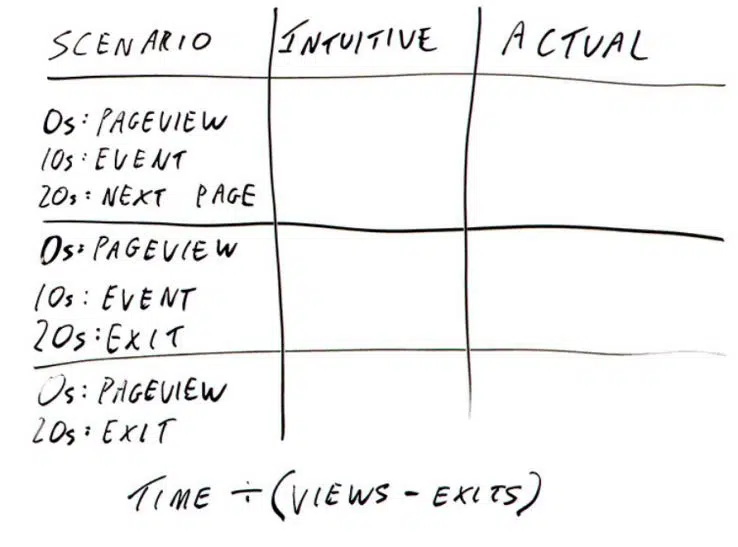 SCENARIO INTUITIVE ACTUAL
0s: PAGEVIEW
10s: EVENT
20s: NEXT PAGE
0s: PAGEVIEW
10s: EVENT
20s: EXIT
0s: PAGEVIEW
20s: EXIT
TIME ÷ (VIEWS - EXITS)